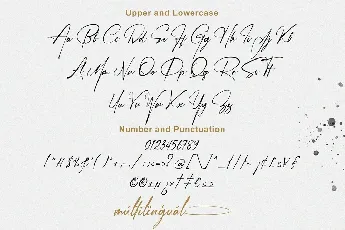 Upper and Lowercase
Aa Bb Cc Dd Ee Ff Gg Hh Ii Jj Kk
Ll Mm Nn Oo Pp Qq Rr Ss Tt
Uu Vv Ww Xx Yy Zz
Number and Punctuation
0123456789
multilingual